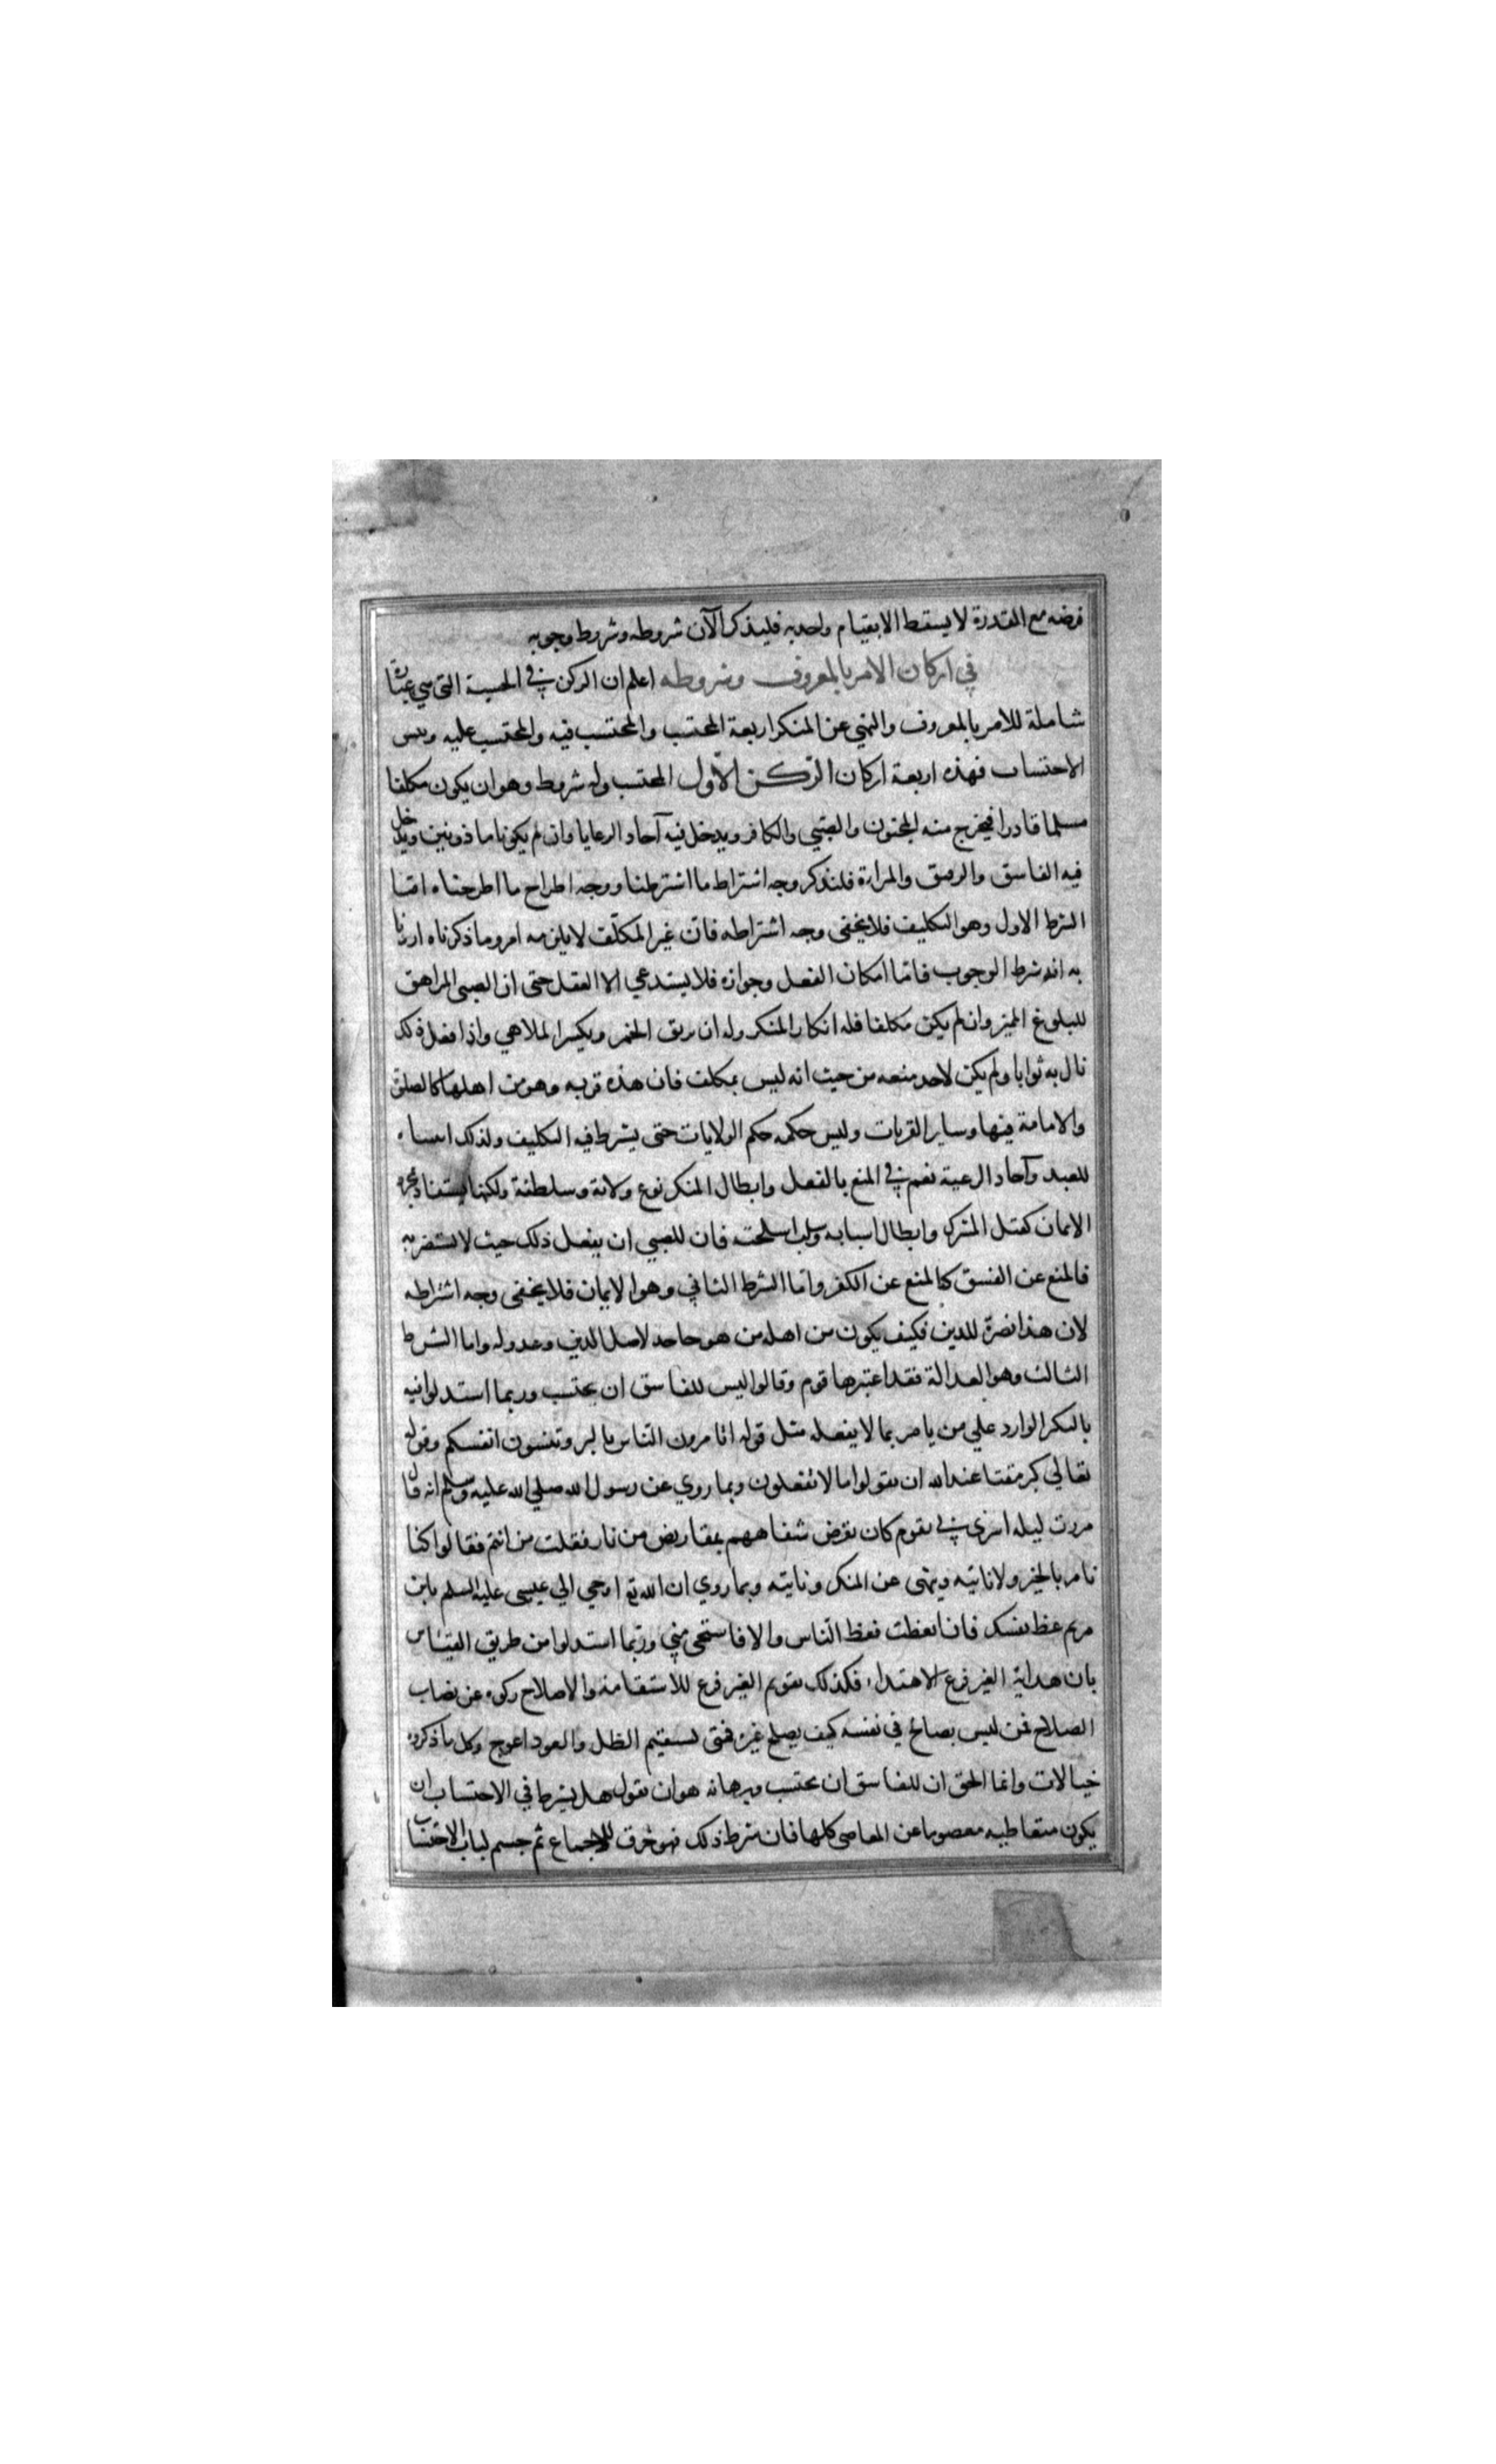 فرضه مع القدرة لا يسقط الا بقيام واحد به فلنذكر الآن شروطه وشروط وجوبه
في اركان الامر بالمعروف وشروطه اعلم ان الركن في الحسبة التي هي عبارة
شاملة للامر بالمعروف والنهي عن المنكر اربعة المحتسب والمحتسب فيه والمحتسب عليه ونفس
الاحتساب فهذه اربعة اركان الرّكن الاوّل المحتسب وله شروط وهو ان يكون مكلفا
مسلما قادرا فيخرج منه المجنون والصّبي والكافر ويدخل فيه آحاد الرعايا وان لم يكونوا ماذونين ويدخل
فيه الفاسق والرقيق والمراءة فلنذكر وجه اشتراط ما اشترطنا ووجه اطراح ما اطرحناه امّا
الشرط الاول وهو التكليف فلا يخفى وجه اشتراطه فانّ غير المكلّف لا يلزمه امر وما ذكرناه اردنا
به انه شرط الوجوب فامّا امكان الفعل وجوازه فلا يستدعي الا العقل حتى ان الصبى المراهق
للبلوغ المميز وان لم يكن مكلفا فله انكار المنكر وله ان يريق الخمر ويكسر الملاهي واذا فعل ذلك
نال به ثوابا ولم يكن لاحد منعه من حيث انه ليس بمكلف فان هذه قربه وهو من اهلها كالصلوة
والامامة فيها وساير القربات وليس حكمه حكم الولايات حتى يشترط فيه التكليف ولذلك اثبتناه
للعبد وآحاد الرعية نعم في المنع بالفعل وابطال المنكر نوع ولاية وسلطنة ولكنها يستفاد بمجرد
الايمان كقتل المشرك وابطال اسبابه وسلب اسلحته فان للصبي ان يفعل ذلك حيث لا يستضر به
فالمنع عن الفسق كالمنع عن الكفر وامّا الشرط الثاني وهو الايمان فلا يخفى وجه اشتراطه
لان هذا نصرة للدين فكيف يكون من اهله من هو جاحد لاصل الدين وعدو له واما الشرط
الثالث وهو العدالة فقد اعتبرها قوم وقالوا ليس للفاسق ان يحتسب وربما استدلوا فيه
بالنكر الوارد علي من يامر بما لا يفعله مثل قوله اتامرون النّاس بالبر وتنسون انفسكم وقوله
تعالي كبر مقتا عند الله ان تقولوا ما لا تفعلون وبما روي عن رسول الله صلي الله عليه وسلم انه قال
مررت ليله اسري بي بقوم كان تقرض شفاههم بمقاريض من نار فقلت من انتم فقالوا كنا
نامر بالخير ولا ناتيه وننهى عن المنكر وناتيه وبما روي ان الله تع اوحي الي عيسى عليه السلم يابن
مريم عظ نفسك فان اتعظت فعظ النّاس والا فاستحي مني وربّما استدلوا من طريق القياس
بان هداية الغير فرع الاهتداء فكذلك تقويم الغير فرع للاستقامة والاصلاح زكوة عن نصاب
الصلاح فمن ليس بصالح في نفسه كيف يصلح غيره فمتى يستقيم الظل والعود اعوج وكل ما ذكروه
خيالات وانما الحق ان للفاسق ان يحتسب وبرهانه هو ان نقول هل يشترط في الاحتساب ان
يكون متعاطيه معصوما عن المعاصي كلها فان شرط ذلك فهو خرق للاجماع ثم حسم لباب الاحتساب